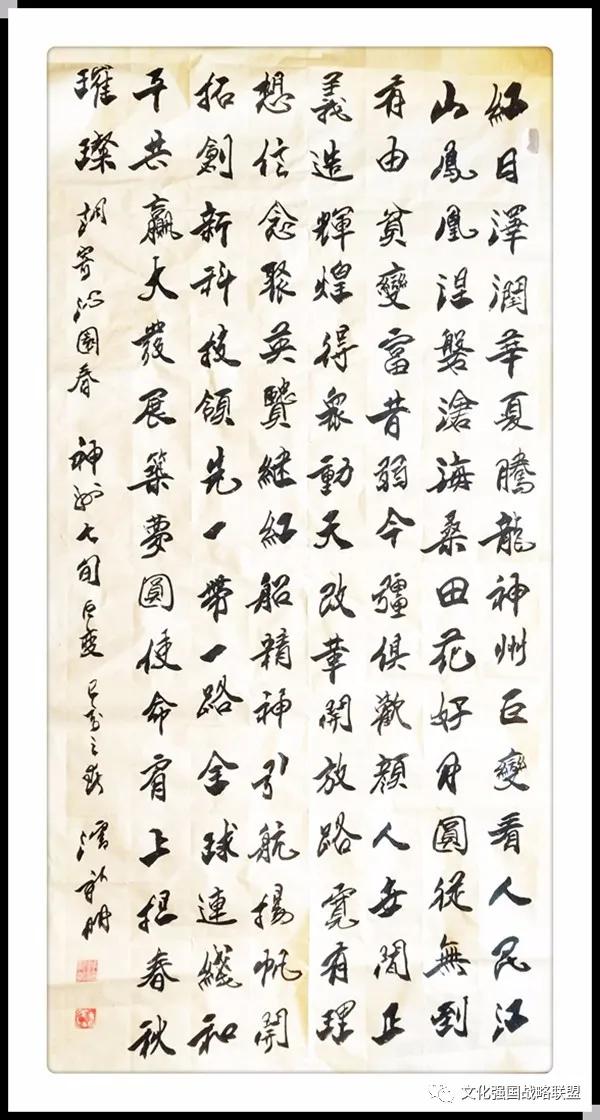 紅日澤潤華夏騰龍神州巨變看人民江
山鳳凰涅磐滄海桑田花好月圓從無到
有由貧變富昔弱今彊俱歡顏人世間正
義造輝煌得眾動天改革開放路寬有理
想信念聚英賢継紅船精神引航揚帆開
拓創新科技領先一帶一路全球連綫和
平共贏大發展築夢圓使命肩上担春秋
璀璨 調寄沁園春 神州七旬巨變 己亥之
文化强国战略联盟